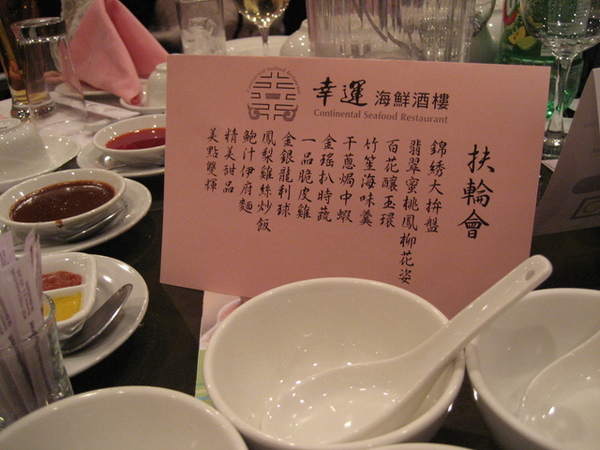 幸運 海鮮酒樓
Continental Seafood Restaurant
扶輪會
錦綉大拚盤
翡翠蜜桃鳳柳花姿
百花釀玉環
竹笙海味羹
干蔥焗中蝦
金瑤扒時蔬
一品脆皮雞
金銀龍利球
鳳梨雞絲炒飯
鮑汁伊府麵
精美甜品
美點雙輝